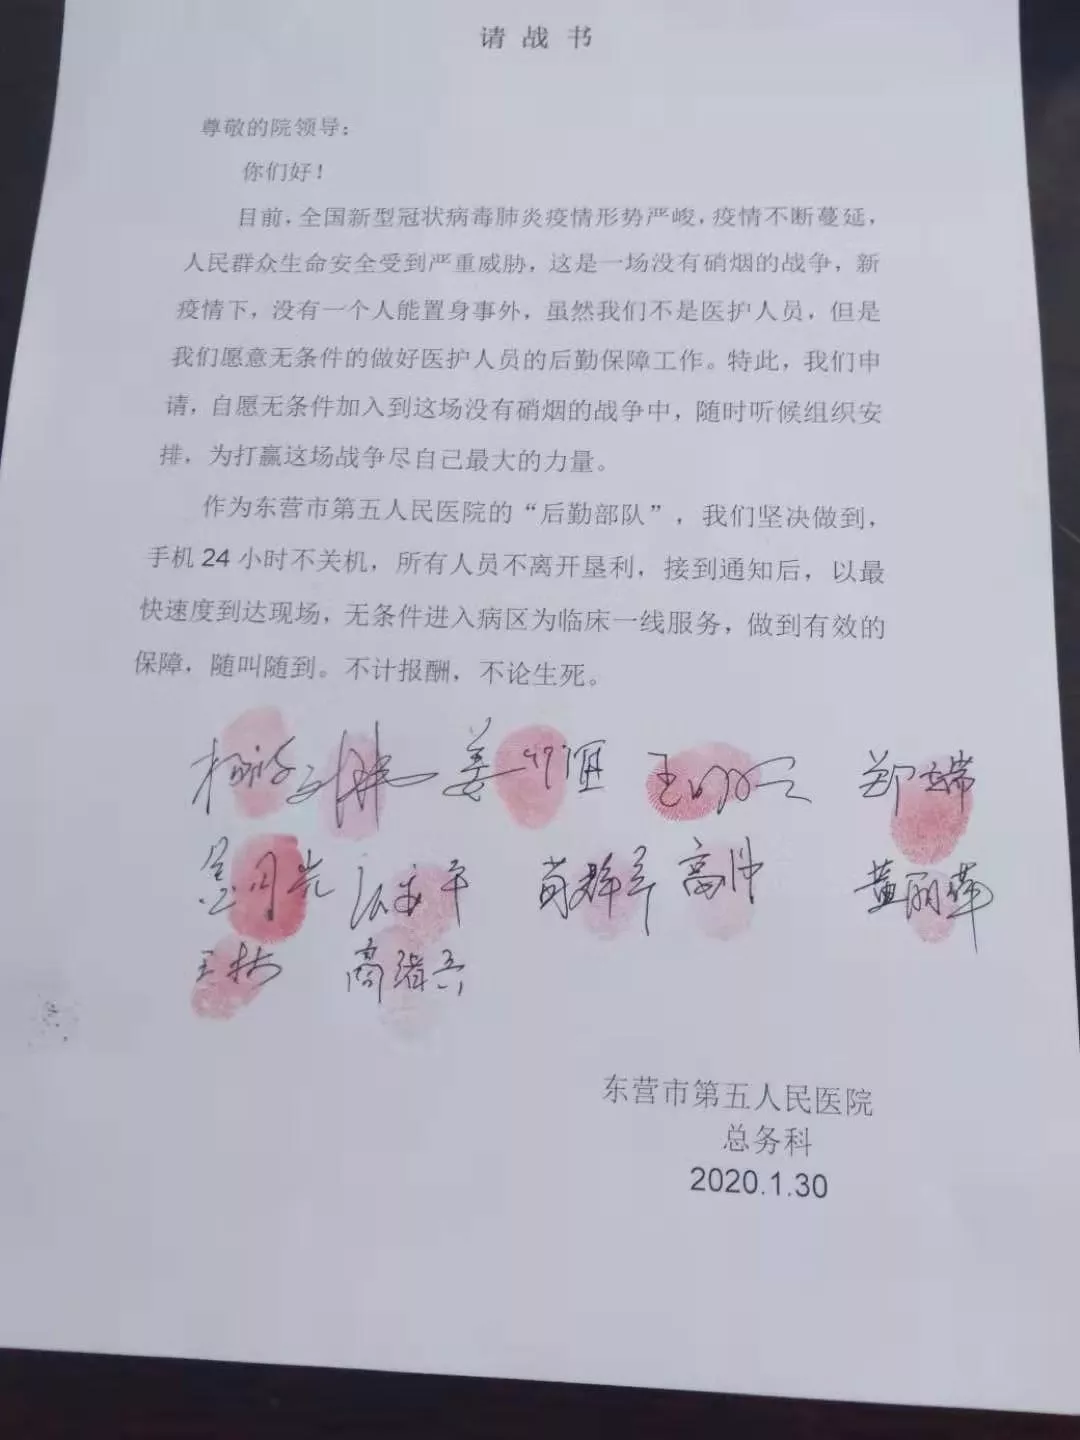 请战书
尊敬的院领导：
你们好！
目前，全国新型冠状病毒肺炎疫情形势严峻，疫情不断蔓延，
人民群众生命安全受到严重威胁，这是一场没有硝烟的战争，新
疫情下，没有一个人能置身事外，虽然我们不是医护人员，但是
我们愿意无条件的做好医护人员的后勤保障工作。特此，我们申
请，自愿无条件加入到这场没有硝烟的战争中，随时听候组织安
排，为打赢这场战争尽自己最大的力量。
作为东营市第五人民医院的“后勤部队”，我们坚决做到，
手机24小时不关机，所有人员不离开垦利，接到通知后，以最
快速度到达现场，无条件进入病区为临床一线服务，做到有效的
保障，随叫随到。不计报酬，不论生死。
姜 郑瑞
高冲 黄丽萍
王树
东营市第五人民医院
总务科
2020.1.30